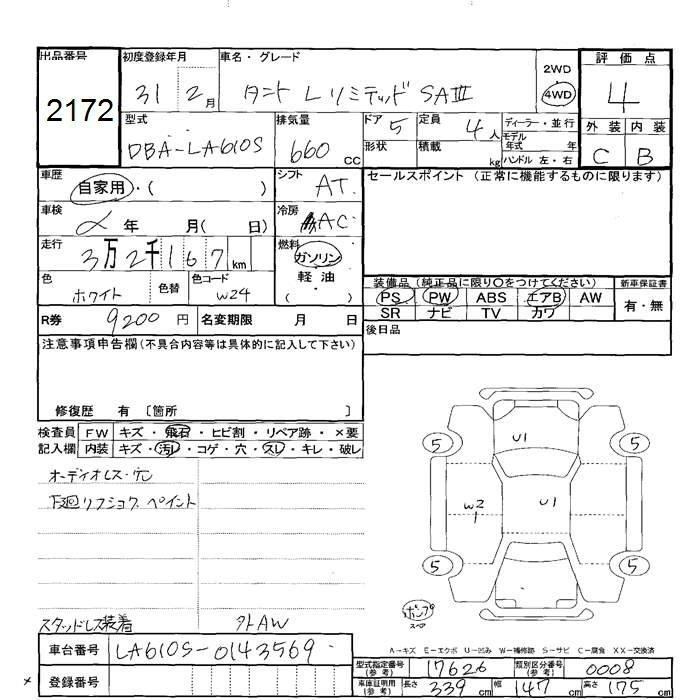 出品番号 初度登録年月 車名・グレード 評価点
2172 31 2月 タント LリミテッドSAⅢ 2WD 4WD 4
型式 排気量 ドア 定員 ディーラー・並行 外装 内装
DBA-LA610S 660cc 5 4人 モデル年式 年
形状 積載 kg ハンドル 左・右 C B
車歴 シフト セールスポイント (正常に機能するものに限ります)
自家用・( ) AT
車検 年 月( 日) 冷房 AC
走行 燃料
3万2千167km ガソリン
色 色替 色コード 軽油
ホワイト W24 ( )
装備品 (純正品に限り○をつけてください) 新車保証書
PS PW ABS エアB AW 有・無
SR ナビ TV カワ
R券 9200円 名変期限 月 日
後日品
注意事項申告欄(不具合内容等は具体的に記入して下さい)
修復歴 有 〔箇所 〕
検査員 FW キズ・飛石・ヒビ割・リペア跡・×要
記入欄 内装 キズ・汚レ・コゲ・穴・スレ・キレ・破レ
オーディオレス・穴
下廻リフショク ペイント
U1
5 5
W2 U1
1
5 5
ポンプ
スペア
スタッドレス装着 外AW
A-キズ E-エクボ U-凹み W-補修跡 S-サビ C-腐食 XX-交換済
車台番号 LA610S-0143569
型式指定番号(参考) 17626 類別区分番号(参考) 0008
登録番号
車庫証明用(参考) 長さ 339cm 幅 147cm 高さ 175cm